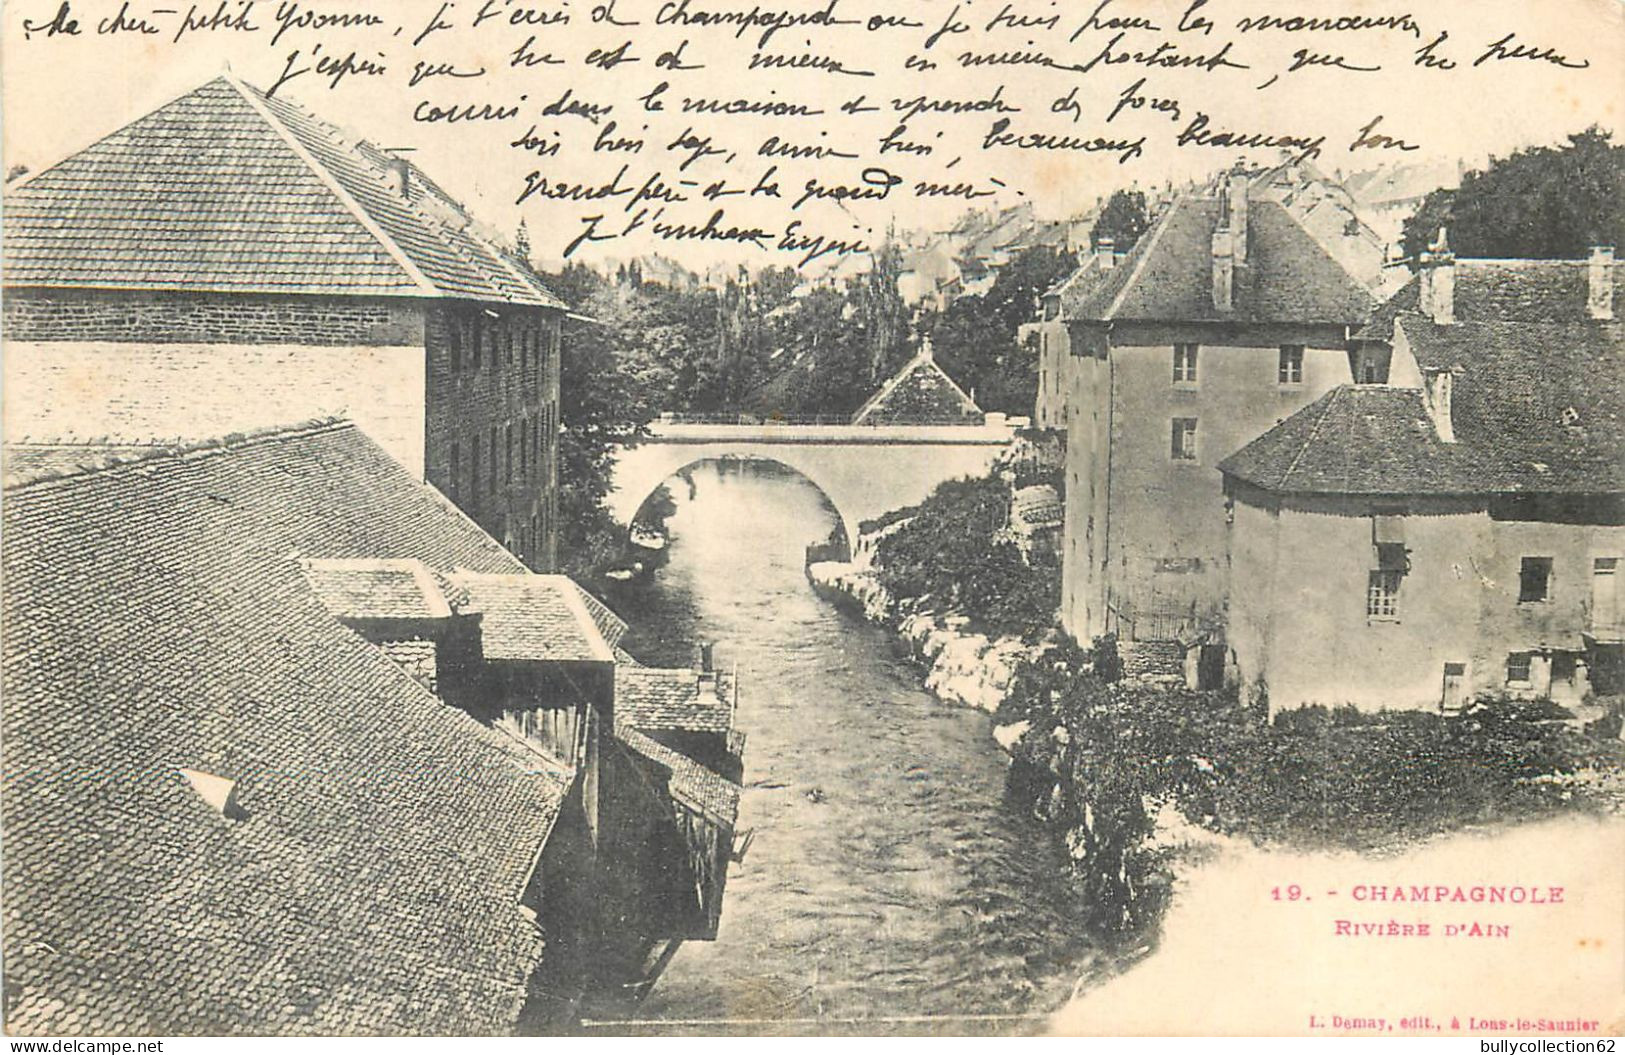 Ma chère petite Yvonne, je t'écris de Champagnole ou je suis pour les manœuvres,
j'espère que tu est de mieux en mieux portante, que tu peux
courir dans la maison et reprendre des forces,
sois bien sage, aime bien, beaucoup beaucoup ton
grand père et ta grand mère.
Je t'embrasse Eugène
19. - CHAMPAGNOLE
RIVIÈRE D'AIN
L. Demay, édit., à Lons-le-Saunier
delcampe.net
bullycollection62